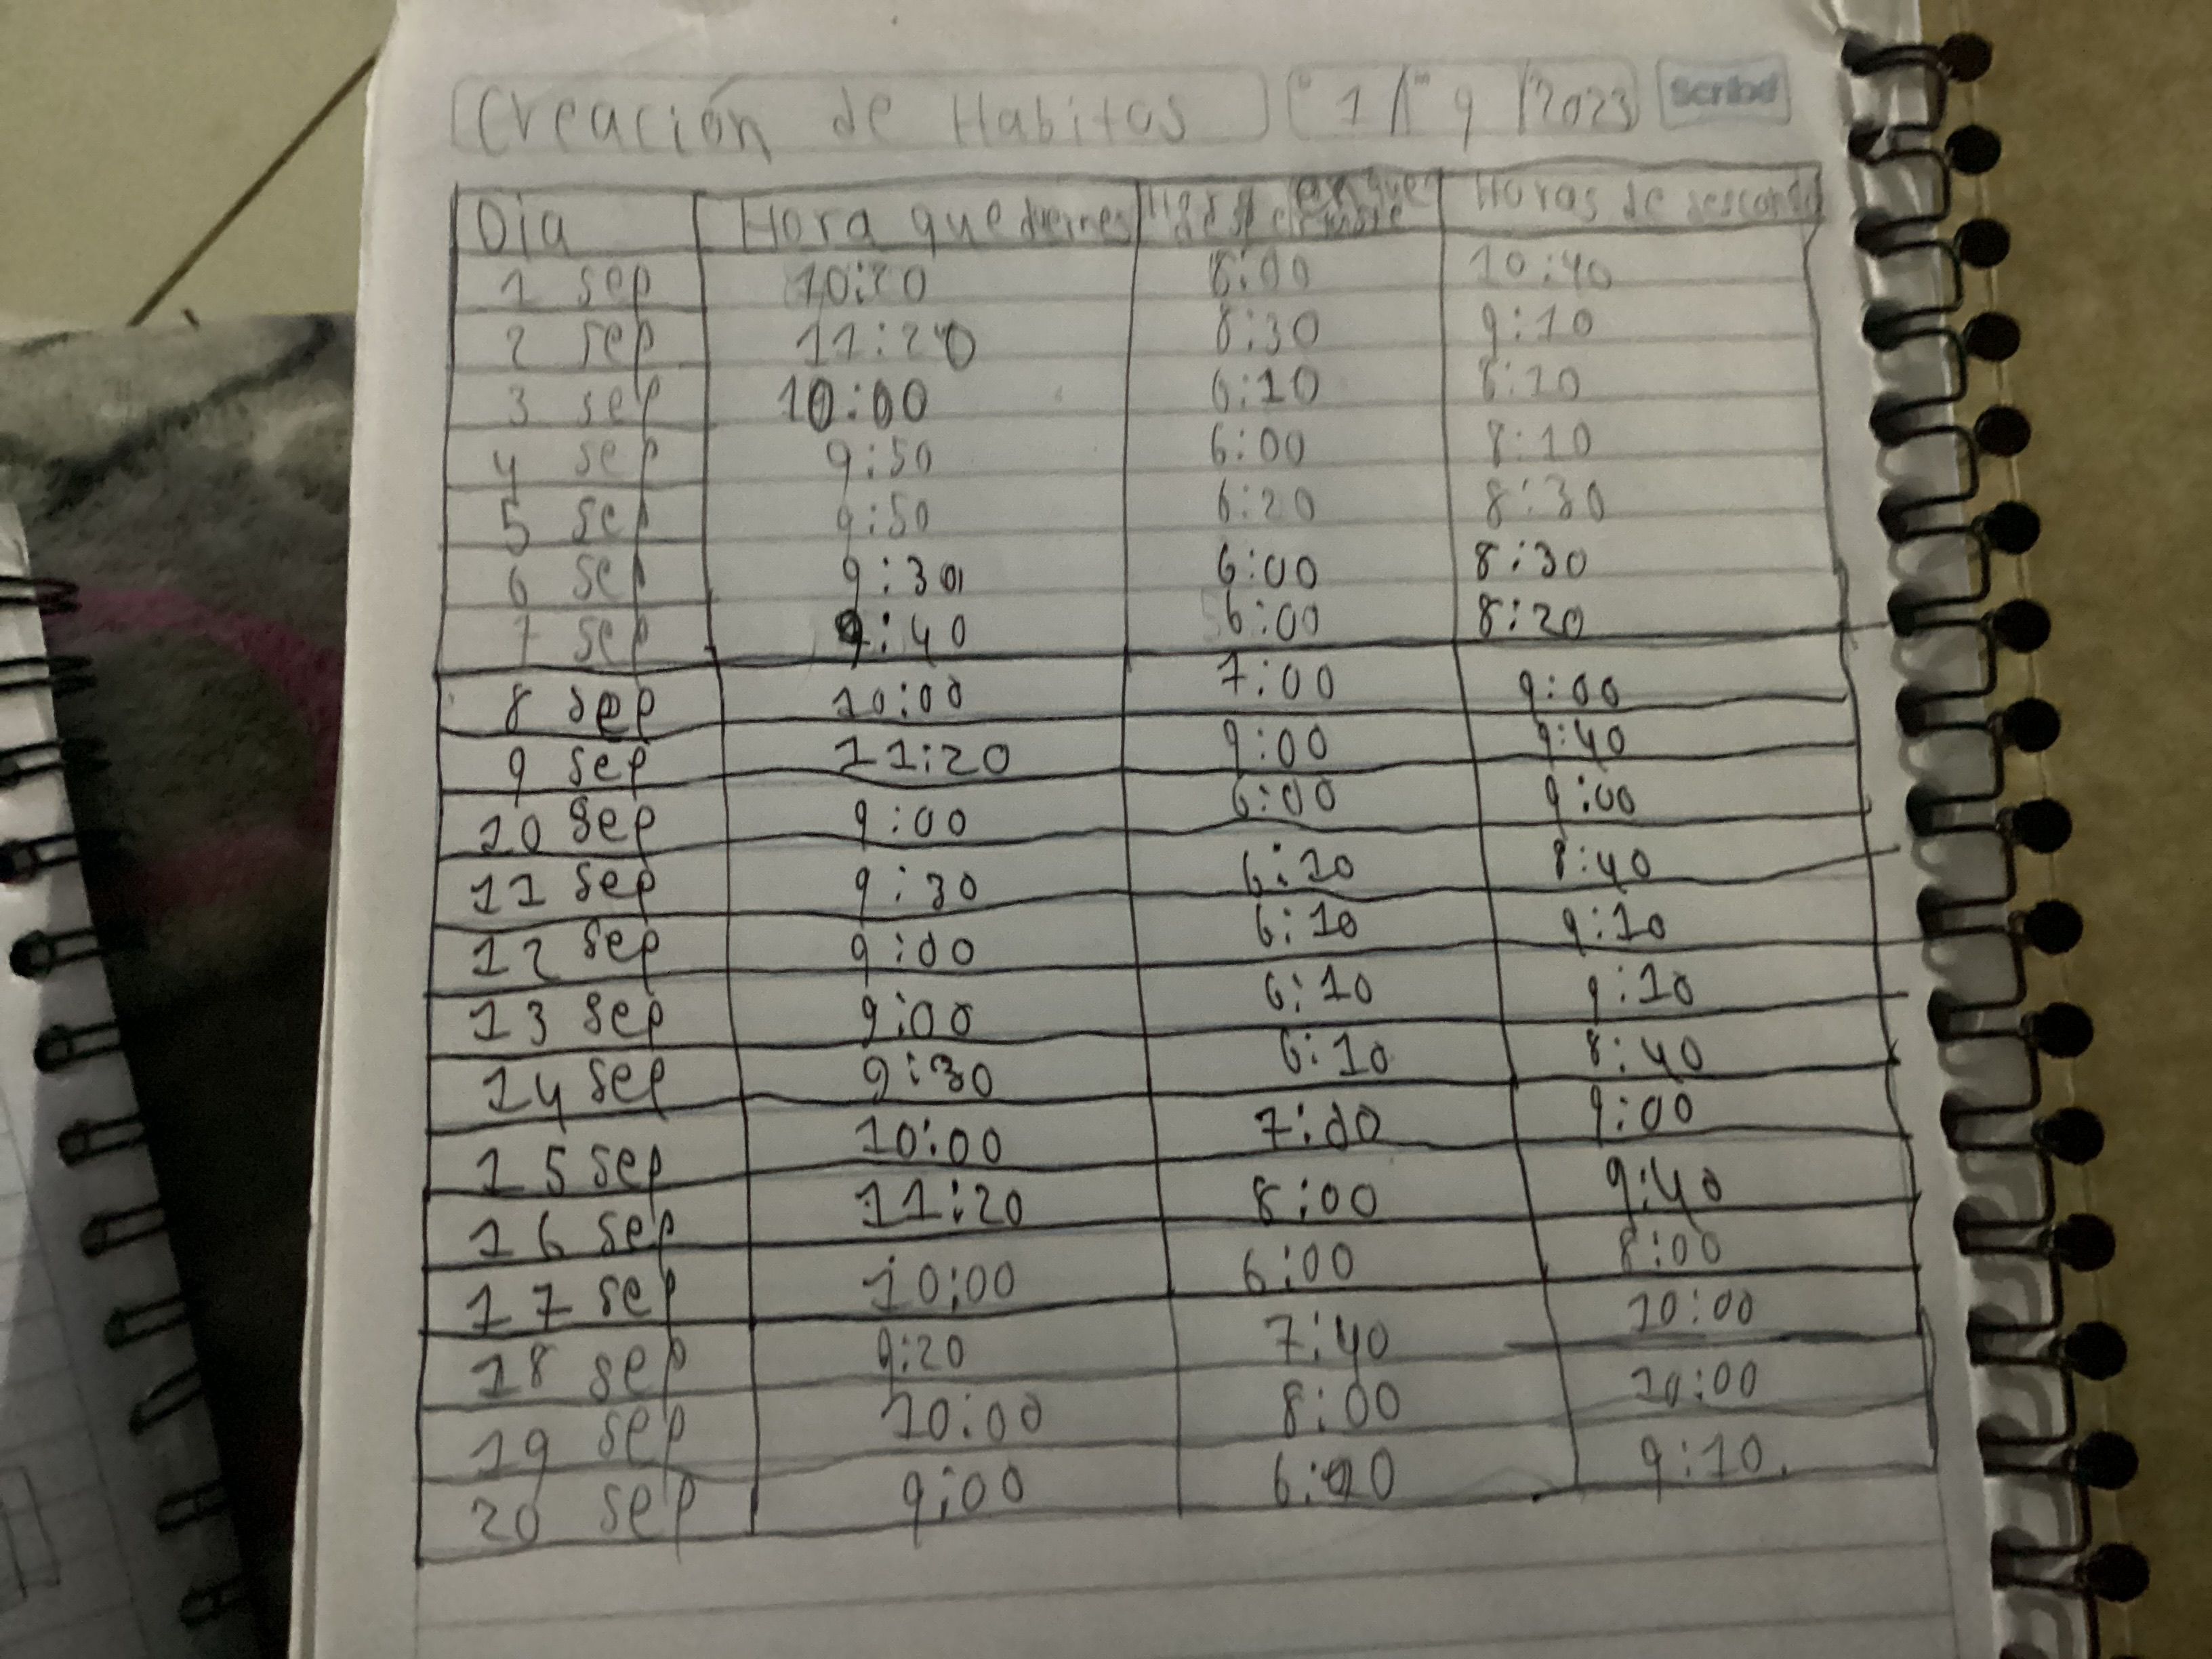 Creación de Habitos 1 / 9 / 2023 Scribe
Dia Hora que duermes Hora en que despertaste Horas de descanso
1 sep 10:20 8:00 10:40
2 sep 11:20 8:30 9:10
3 sep 10:00 6:10 8:10
4 sep 9:50 6:00 8:10
5 sep 9:50 6:20 8:30
6 sep 9:30 6:00 8:30
7 sep 9:40 6:00 8:20
8 sep 10:00 7:00 9:00
9 sep 11:20 9:00 9:40
10 sep 9:00 6:00 9:00
11 sep 9:30 6:10 8:40
12 sep 9:00 6:10 9:10
13 sep 9:00 6:10 9:10
14 sep 9:30 6:10 8:40
15 sep 10:00 7:00 9:00
16 sep 11:20 8:00 9:40
17 sep 10:00 6:00 8:00
18 sep 9:20 7:40 10:00
19 sep 10:00 8:00 10:00
20 sep 9:00 9:10.